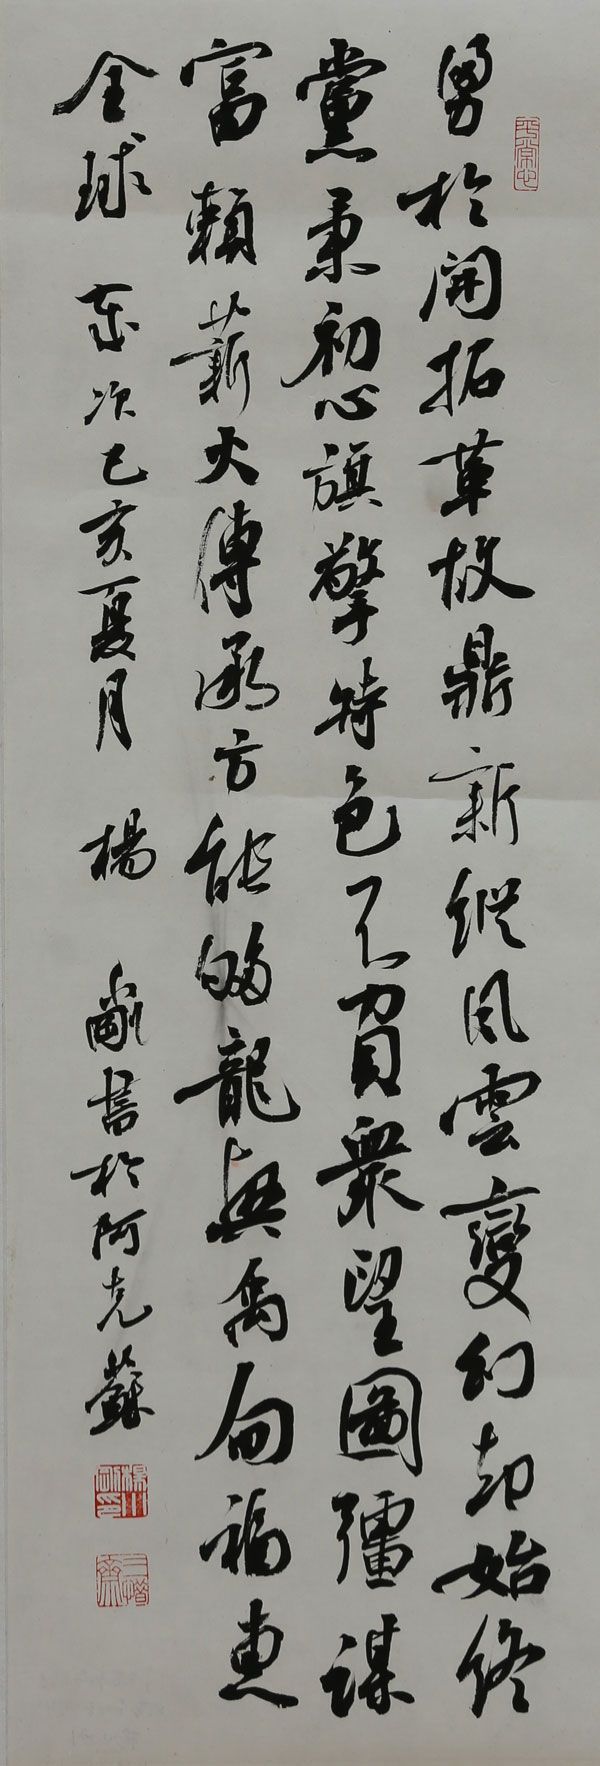 平常心
勇於開拓革故鼎新縱風雲變幻却始終
黨秉初心旗擎特色不負衆望圖彊謀
富賴薪火傳承方能够龍興禹甸福惠
全球 歲次己亥夏月 楊剛書於阿克蘇